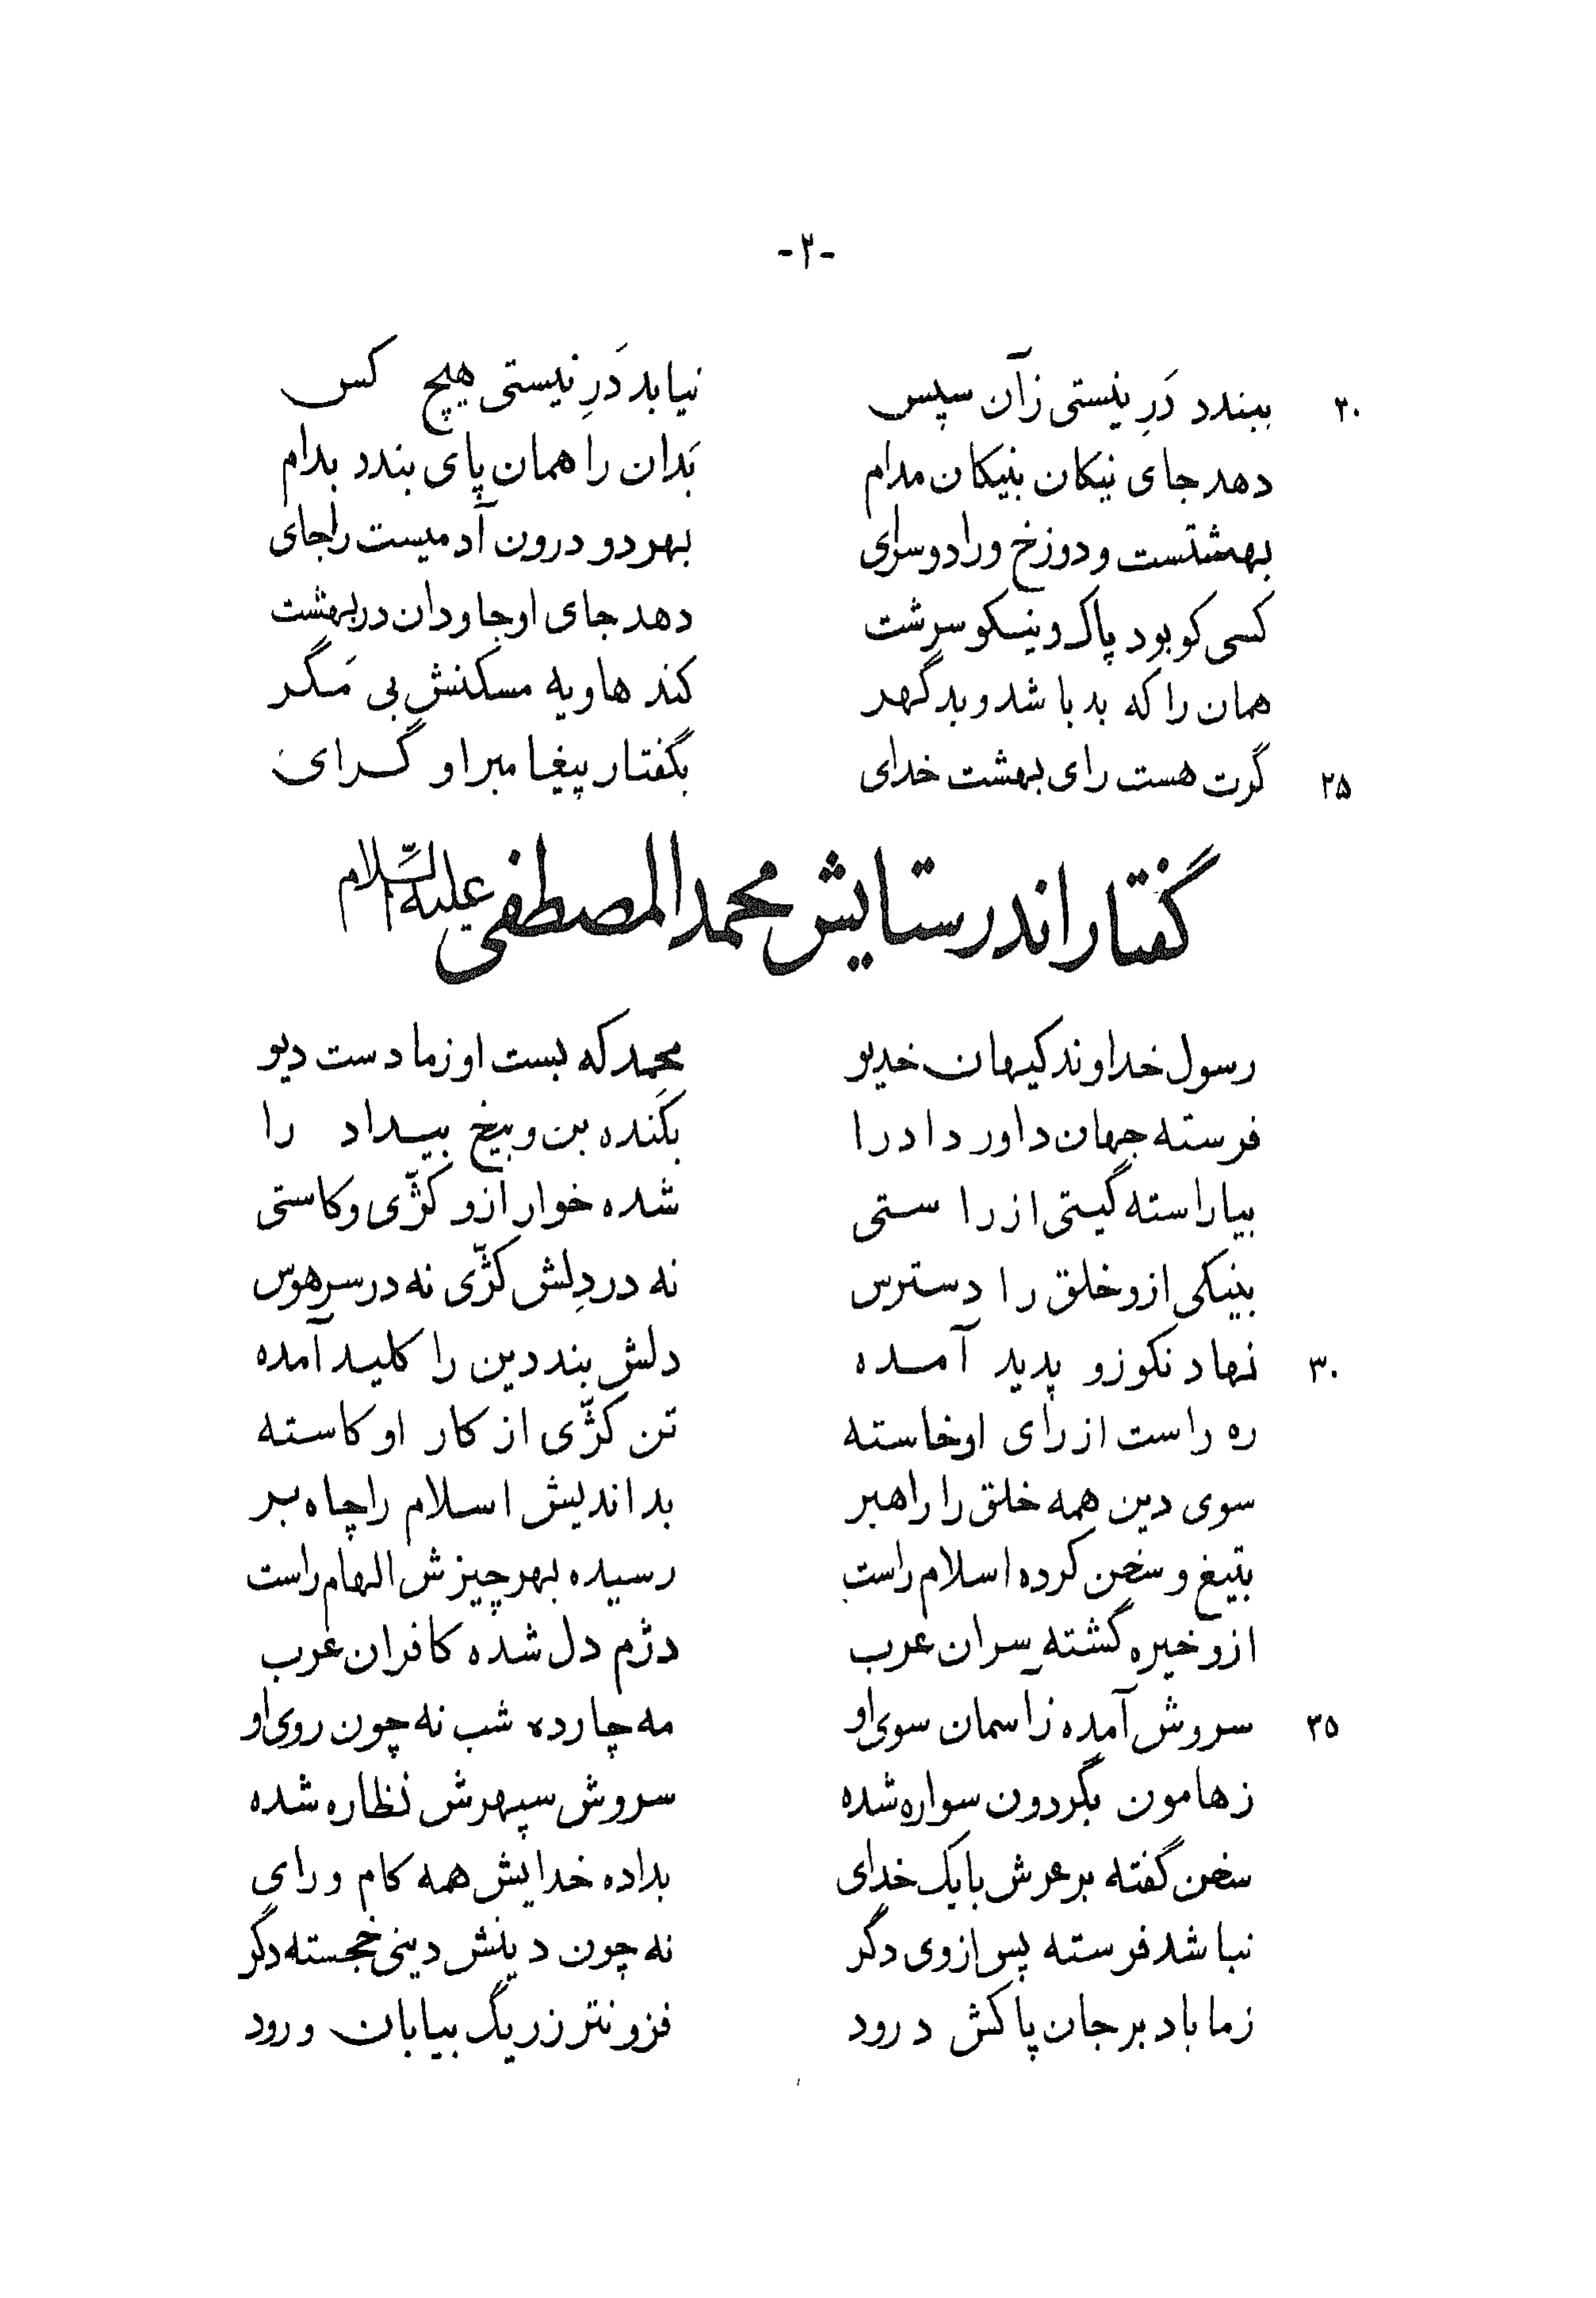 -۲-
۲۰ ببندد دَرِ نیستی زآن سپس نیابد دَرِ نیستی هیچ کس
دهد جای نیکان بنیکان مدام بَدان را همان پای بندد بدام
بهشتست و دوزخ ورا دو سرای بهر دو درون آدمیست را جای
کسی کو بود پاک و نیکو سرشت دهد جای او جاودان در بهشت
همان را که بد باشد و بد گهر کند هاویه مسکنش بی مَگر
۲۵ گرت هست رای بهشت خدای بگفتار پیغامبر او گرای
گفتار اندر ستایش محمد المصطفی علیه السّلام
رسول خداوند کیهان خدیو محمد که بست او ز ما دست دیو
فرسته جهان داور داد را بکَنده بن و بیخ بیداد را
بیاراسته گیتی از راستی شده خوار ازو کژّی و کاستی
بنیکی ازو خلق را دسترس نه در دِلش کژّی نه در سر هوس
۳۰ نهاد نکو زو پدید آمده دلش بند دین را کلید آمده
ره راست از رای او خاسته تن کژّی از کار او کاسته
سوی دین همه خلق را راهبر بد اندیش اسلام را چاه بر
بتیغ و سخن کرده اسلام راست رسیده بهر چیزش الهام راست
ازو خیره گشته سران عرب دژم دل شده کافران عرب
۳۵ سروش آمده زآسمان سوی او مه چارده شب نه چون روی او
ز هامون بگردون سواره شده سروش سپهرش نظاره شده
سخن گفته بر عرش با یک خدای بداده خدایش همه کام و رای
نباشد فرسته پس از وی دگر نه چون دینش دینی خجسته دگر
ز ما باد بر جان پاکش درود فزونتر ز ریگ بیابان و رود